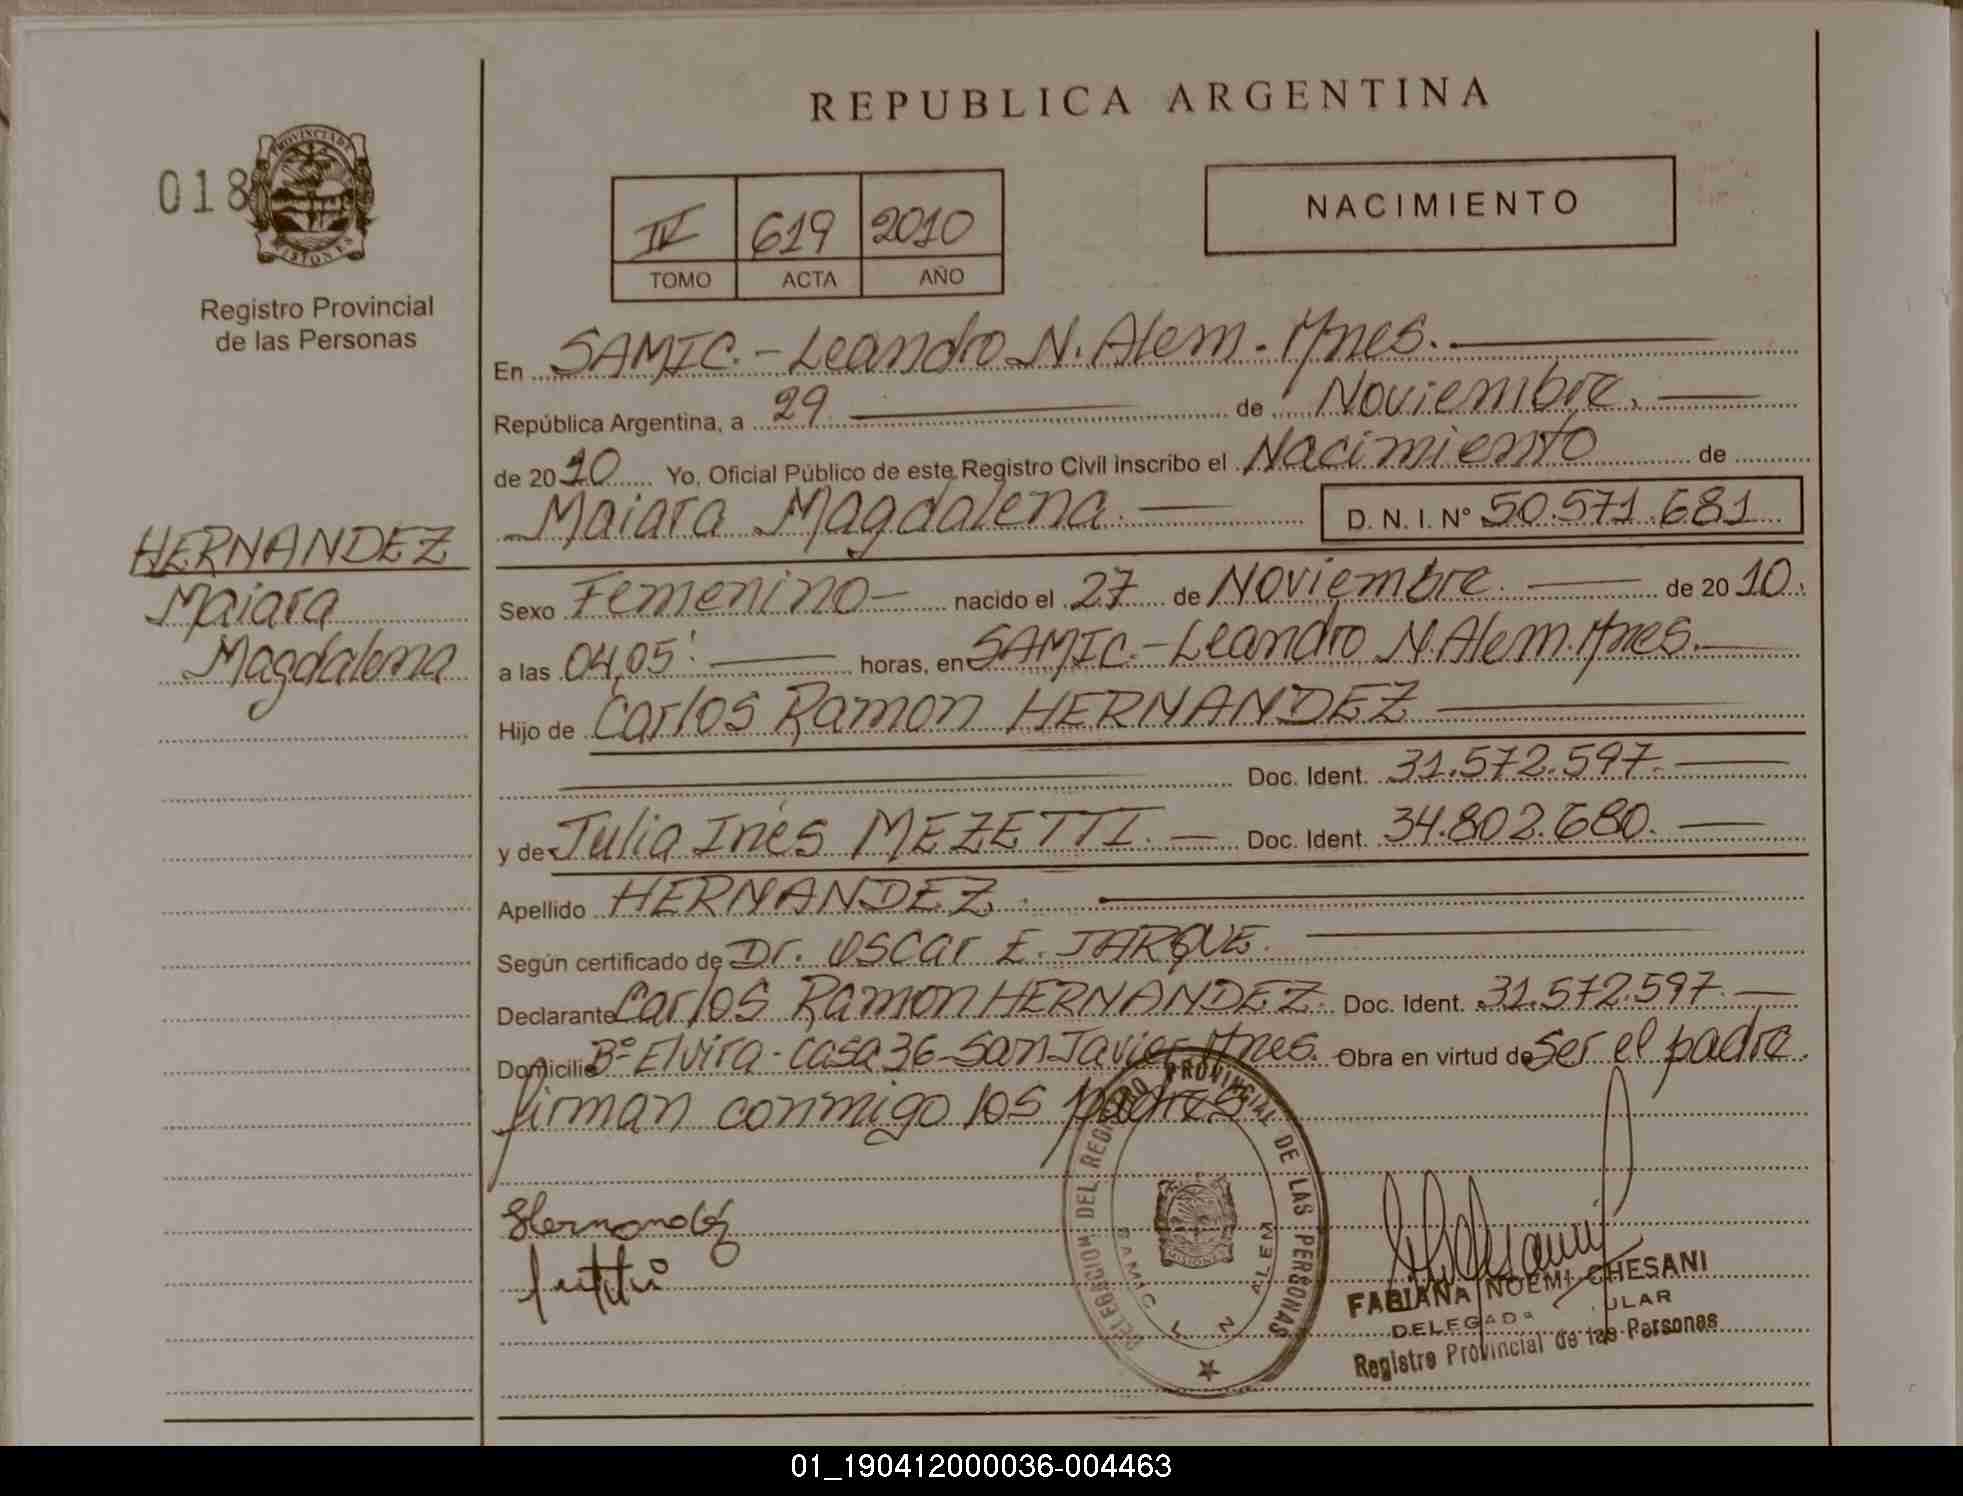 REPUBLICA ARGENTINA
018
PROVINCIA DE
MISIONES
Registro Provincial
de las Personas
IV 619 2010
TOMO ACTA AÑO
NACIMIENTO
En SAMIC.- Leandro N. Alem. Mnes.
República Argentina, a 29 de Noviembre.
de 2010 Yo, Oficial Público de este Registro Civil inscribo el Nacimiento de
Maiara Magdalena. D. N. I. N° 50.571.681
HERNANDEZ
Maiara
Magdalena
Sexo Femenino nacido el 27 de Noviembre. de 2010.
a las 04,05' horas, en SAMIC.- Leandro N. Alem. Mnes.
Hijo de Carlos Ramon HERNANDEZ
Doc. Ident. 31.572.597.
y de Julia Inés MEZETTI. Doc. Ident. 34.802.680.
Apellido HERNANDEZ.
Según certificado de Dr. OSCar E. JARQUE.
Declarante Carlos Ramon HERNANDEZ. Doc. Ident. 31.572.597.
Domicilio B° Elvira - casa 36 - San Javier Mnes. Obra en virtud de ser el padre.
firman conmigo los padres
Hernandez
DELEGACION DEL REGISTRO PROVINCIAL DE LAS PERSONAS
SAMIC L N ALEM
MISIONES
FABIANA NOEMI CHESANI
DELEGADA
Registro Provincial de las Personas
01_190412000036-004463